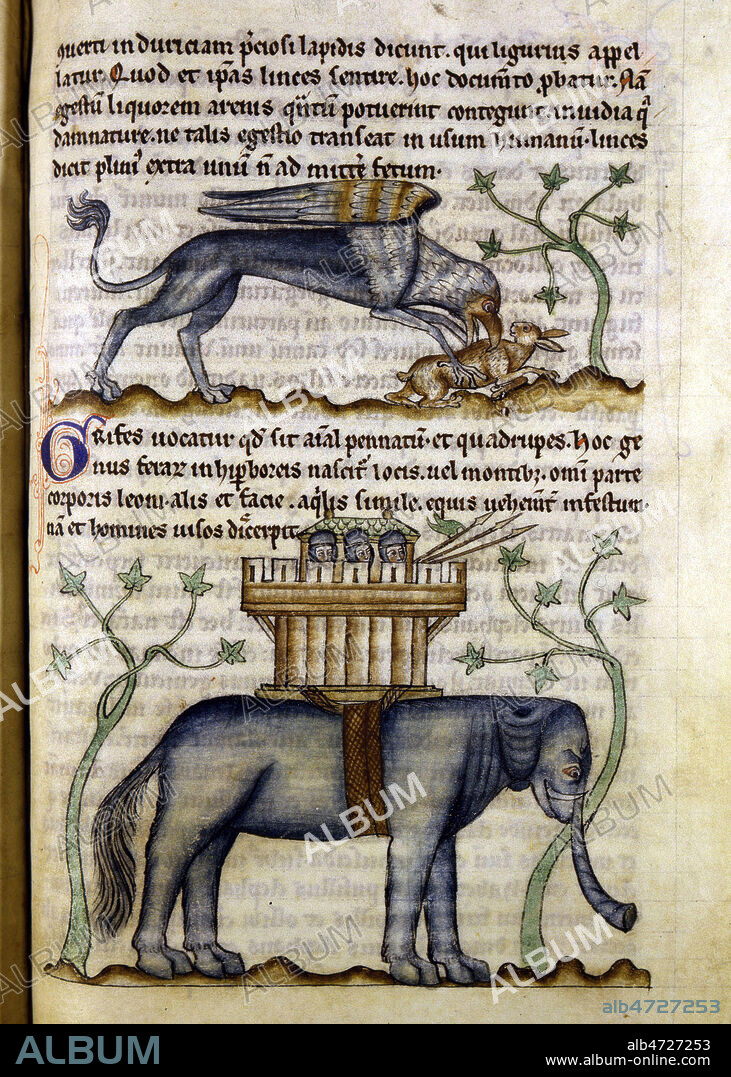 uerti in duriciam p̄ciosi lapidis dicunt. qui ligurius appel
latur. Quod et ip̄as linces sentire. hoc documto ꝓbatur. Nā
egestū liquorem arenis q̄ntū potuerint contegunt. inuidia q̄
damnature. ne talis egestio transeat in usum humanū. linces
dicit plini᷒ extra unū n̄ ad mittr̄e fetum.
Grifes uocatur qd̄ sit aīal pennatū. et quadrupes. hoc ge
nus feraꝝ in hiꝑboreis nascit᷑ locis. uel montibꝫ. omī parte
corporis leoni. alis et facie. aq̄lis simile. equis uehemt̄ infestum.
nā et homines uisos dīcerpit.
ALBUM
alb4727253
ALBUM
alb4727253
www.album-online.com